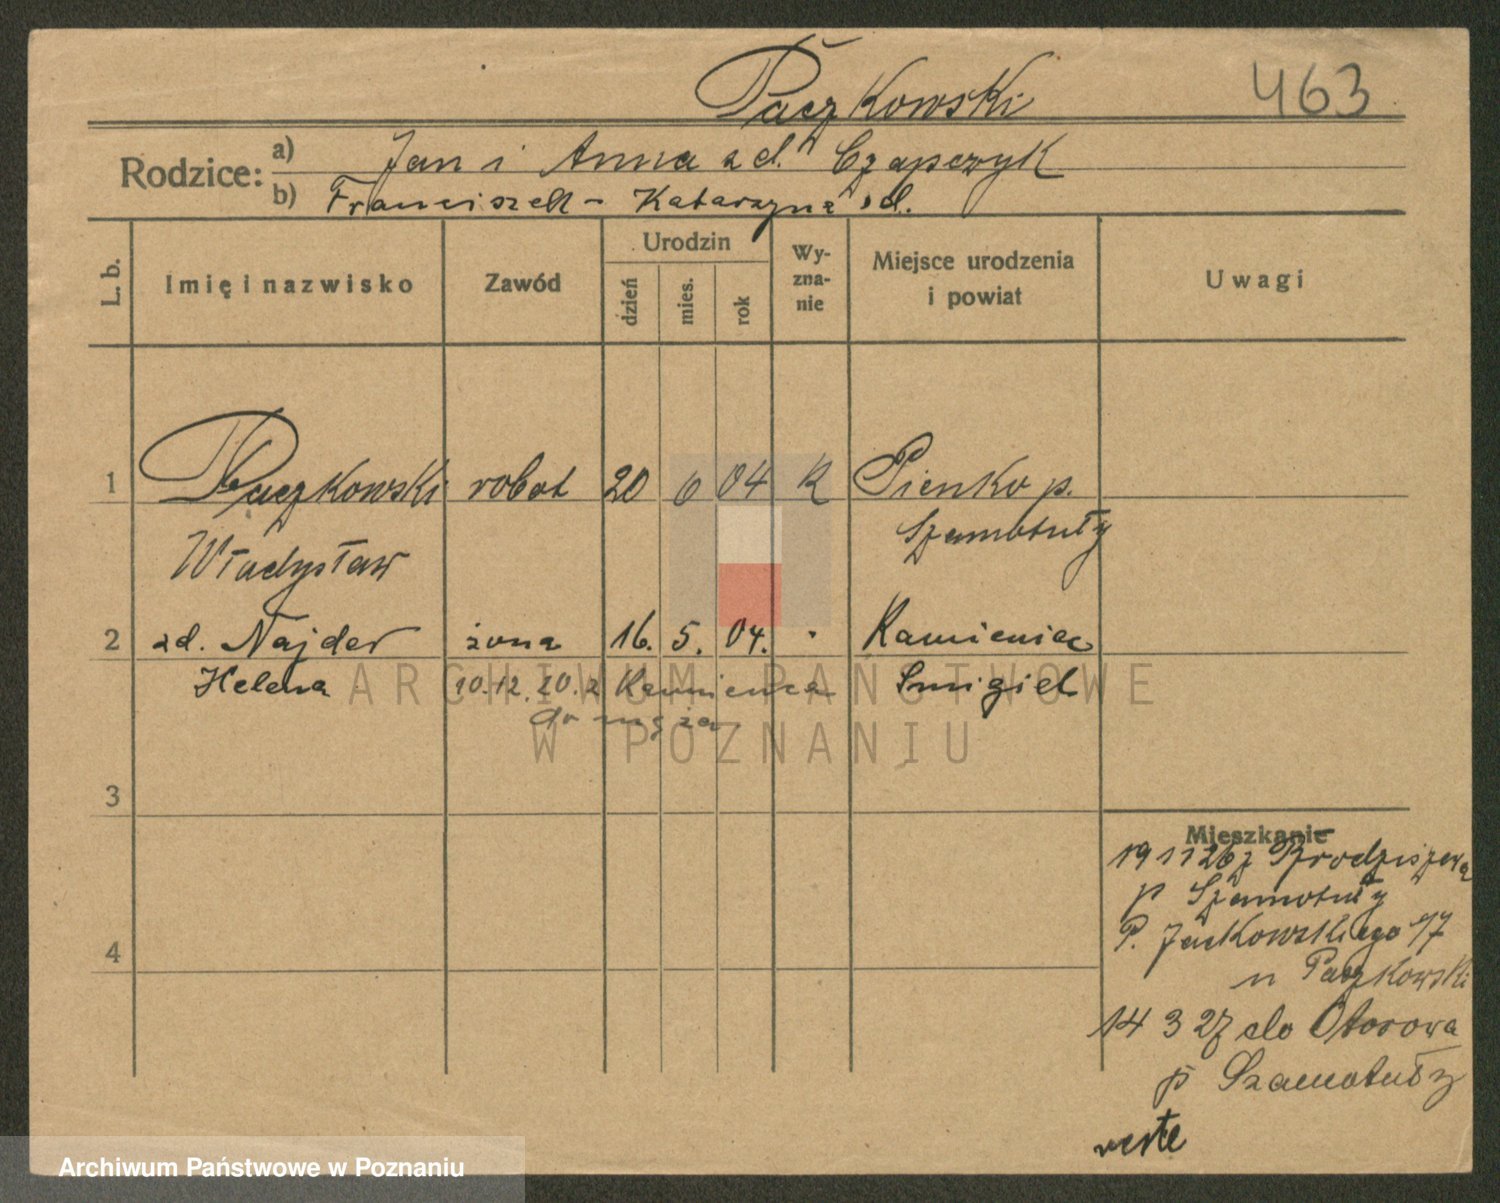 Paczkowski
463
Rodzice:
a) Jan i Anna zd. Czapczyk
b) Franciszek - Katarzyna zd.
L. b.
Imię i nazwisko
Zawód
Urodzin
dzień
mies.
rok
Wy-
zna-
nie
Miejsce urodzenia
i powiat
Uwagi
1 Paczkowski robot 20 6 04 k Pienko p.
Władysław Szamotuły
2 zd. Najder żona 16. 5. 04. Kamieniec
Helena 10.12. z Kamieńca Smigiel
do męża
ARCHIWUM PAŃSTWOWE
W POZNANIU
3
4
Mieszkanie
19 11 26 z Brodziszewa
p Szamotuły
P. Jackowskiego 17
n Paczkowski
14 3 27 do Otorowa
p Szamotuły
Archiwum Państwowe w Poznaniu